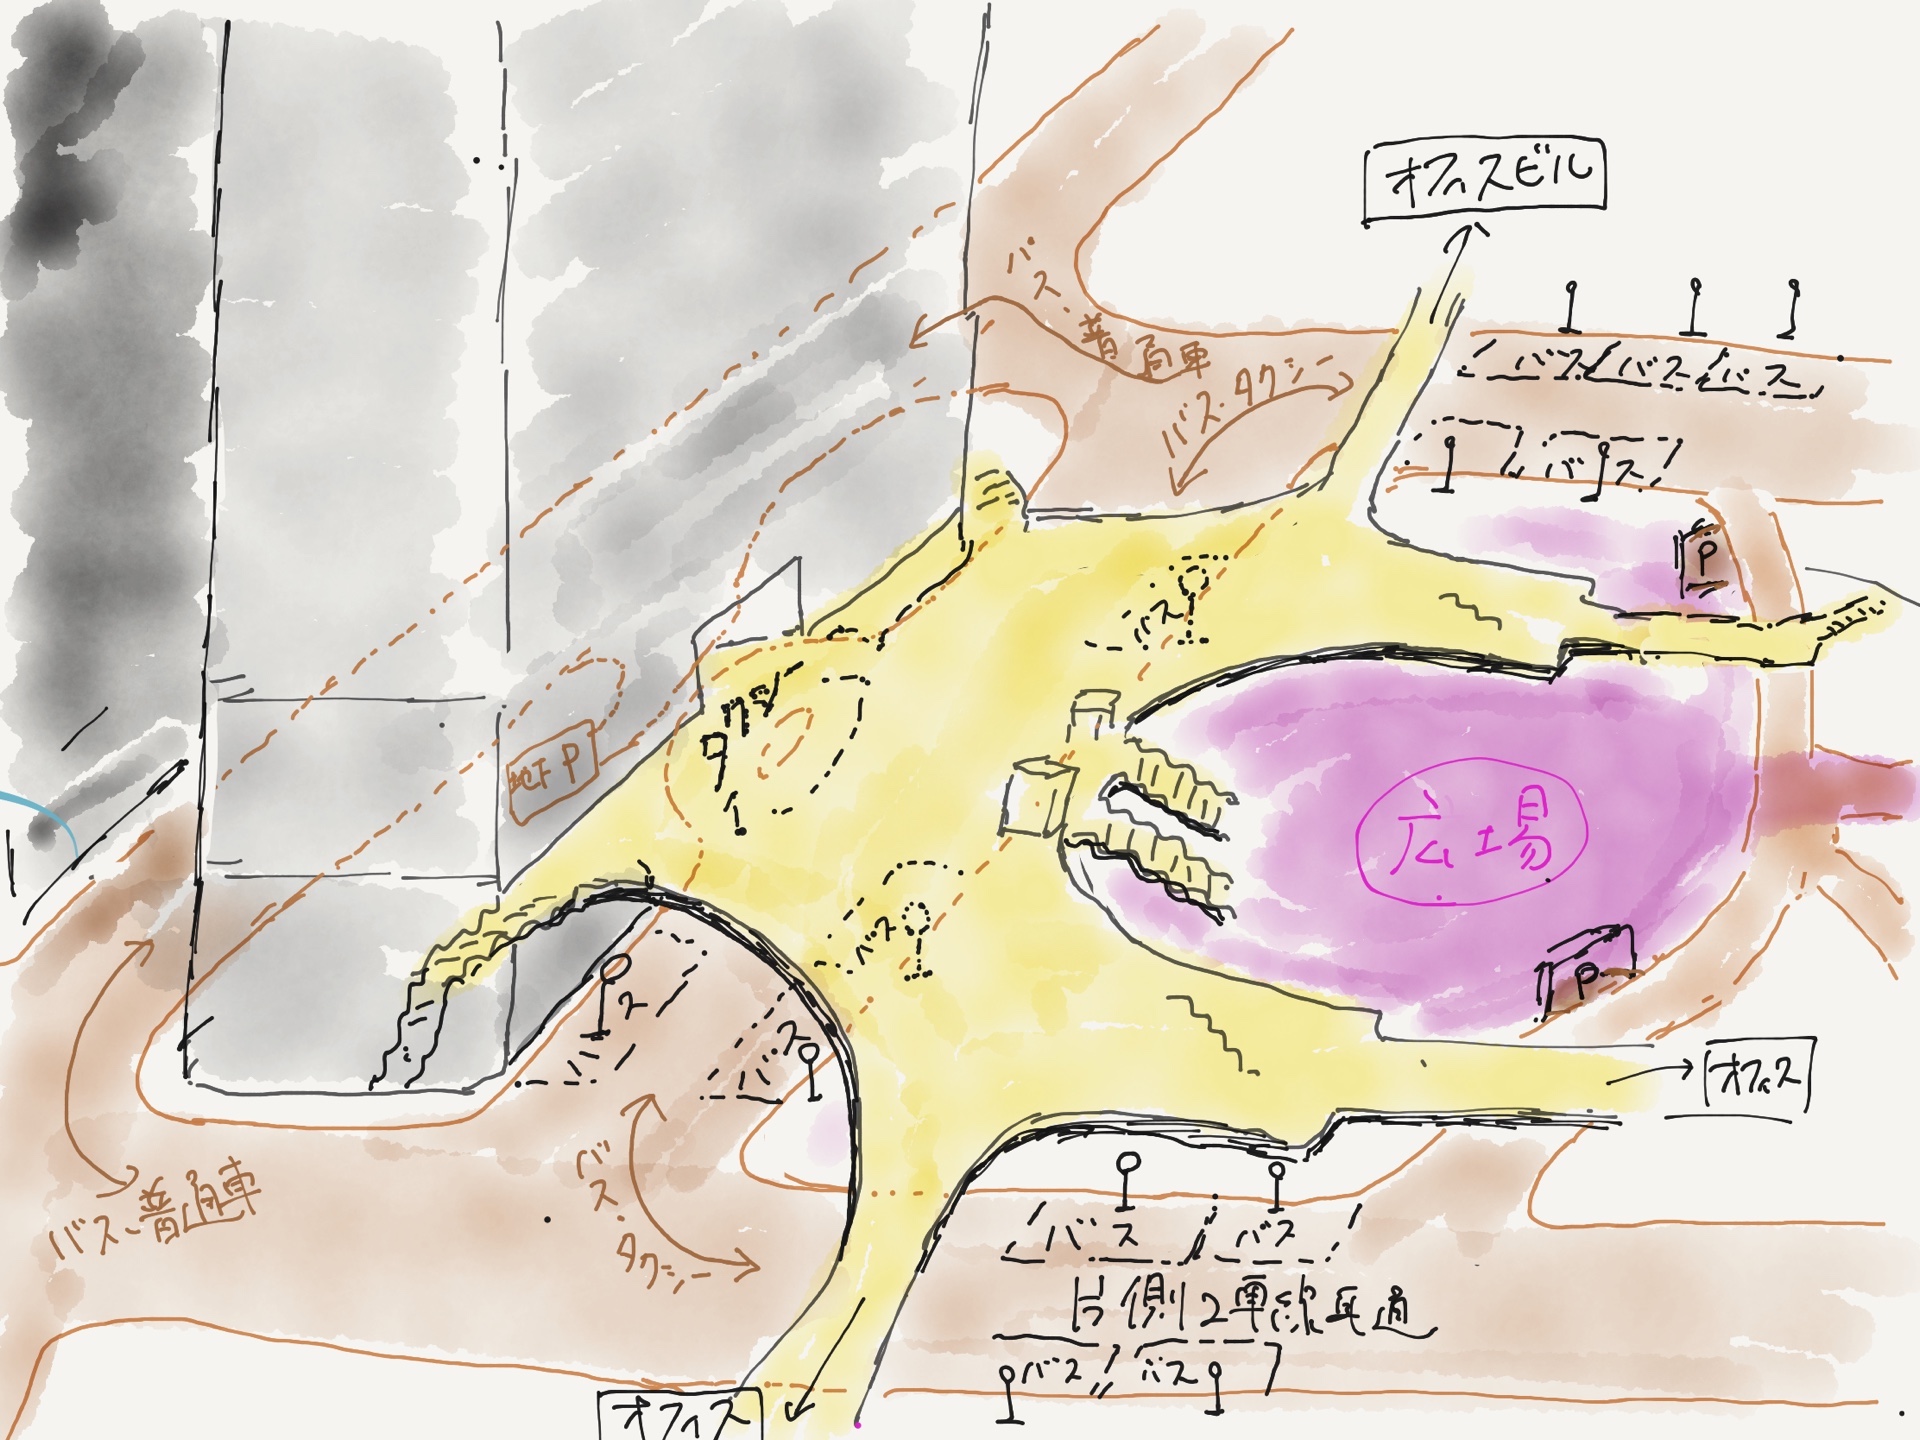 オフィスビル
バス・普通車
バス バス バス
バス・タクシー
バス
P
バス
タクシー
地下P
広場
バス
P
バス
バス
オフィス
バス・普通車
バス・タクシー
バス バス
片側2車線車道
バス バス
オフィス